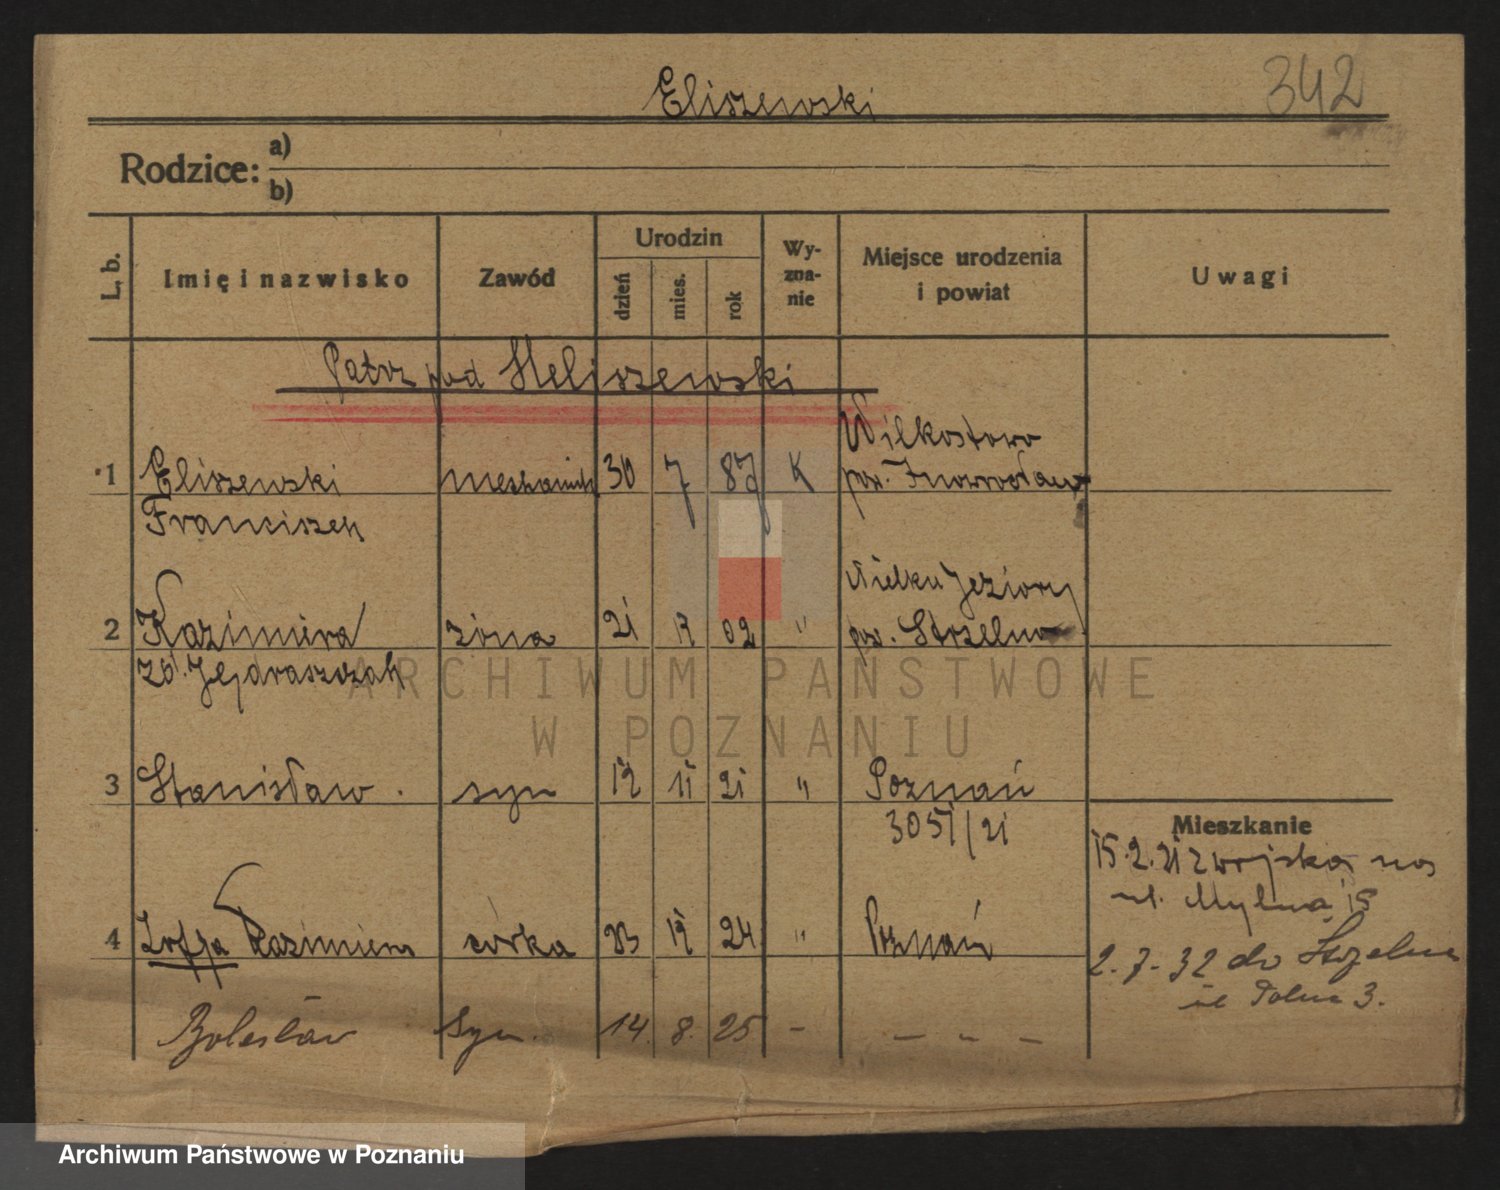 Eliszewski
342
Rodzice: a)
b)
L. b.
Imię i nazwisko
Zawód
Urodzin
dzień
mies.
rok
Wy-
zna-
nie
Miejsce urodzenia
i powiat
Uwagi
Patrz pod Heliszewski
1 Eliszewski mechanik 30 7 87 K Wilkostowo
Franciszek pow. Inowrocław
2 Kazimiera żona 21 02 " Jeziory
zd. Jędraszczak pow. Strzelno
3 Stanisław syn 12 11 21 " Poznań
3051/21
Mieszkanie
15.2.21 z wojska na
ul. Mylna 15
4 Zofja Kazimiera córka 24 " Poznań
2.7.32 do Strzelna
ul Polna 3.
Bolesław syn. 14. 8. 25 - - - -
ARCHIWUM PAŃSTWOWE
W POZNANIU
Archiwum Państwowe w Poznaniu